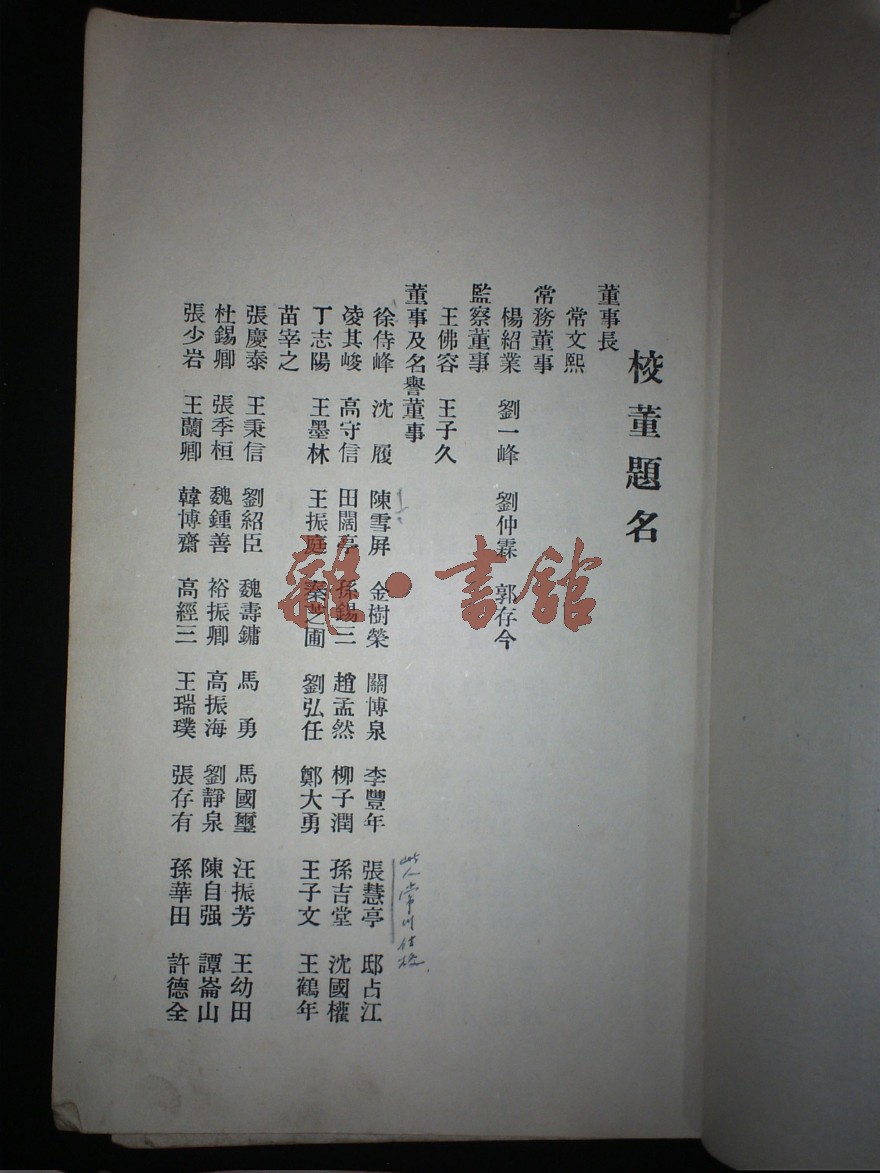 校董題名
董事長
常文熙
常務董事
楊紹業 劉一峰 劉仲霖 郭存今
監察董事
王佛容 王子久
董事及名譽董事
徐侍峰 沈履 陳雪屏 金樹榮 關博泉 李豐年 張慧亭 邸占江
凌其峻 高守信 田闊亭 孫錫三 趙孟然 柳子潤 孫吉堂 沈國權
丁志陽 王墨林 王振庭 秦芝圃 劉弘任 鄭大勇 王子文 王鶴年
苗宰之
張慶泰 王秉信 劉紹臣 魏壽鏞 馬勇 馬國璽 汪振芳 王幼田
杜錫卿 張季桓 魏鍾善 裕振卿 高振海 劉靜泉 陳自强 譚崙山
張少岩 王蘭卿 韓博齋 高經三 王瑞璞 張存有 孫華田 許德全
此人常川住校
書館